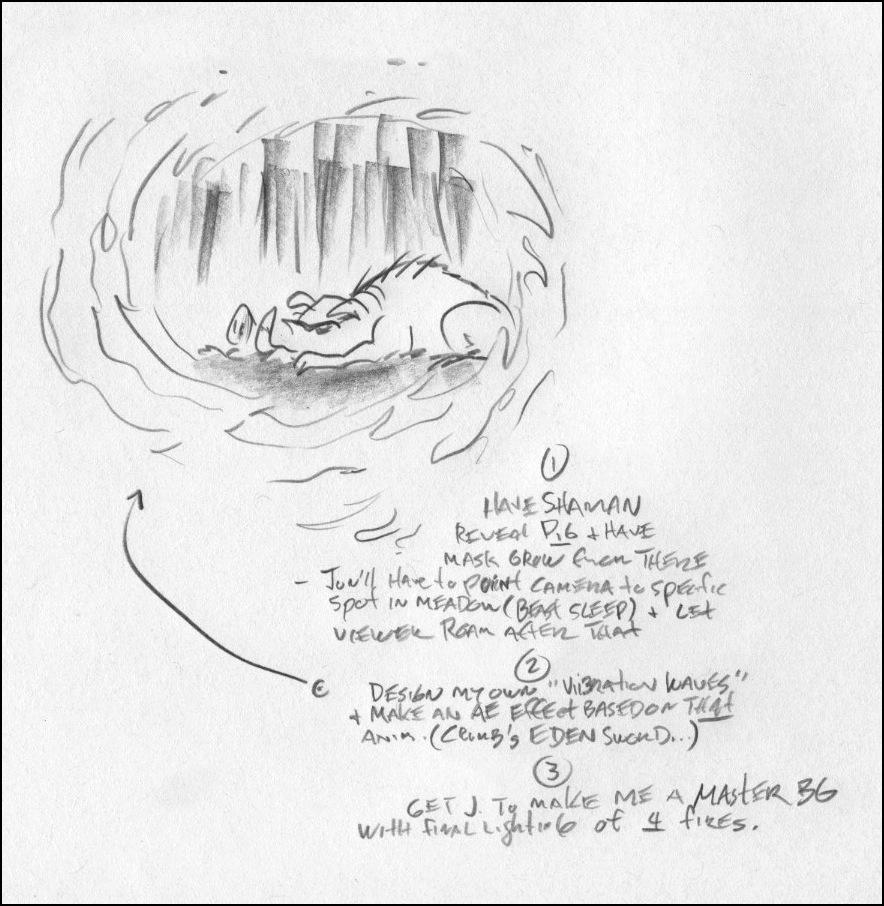 ①
HAVE SHAMAN
REVEAL PIG + HAVE
MASK GROW FROM THERE
- JON'll HAVE to POINT CAMERA to SPECIFIC
SPOT IN MEADOW (BEAST SLEEP) + LET
VIEWER ROAM AFTER THAT
②
DESIGN MY OWN "VIBRATION WAVES"
+ MAKE AN AE EFFECT BASED ON THAT
ANIM. (CRUMB'S EDEN SUCKED...)
③
GET J. TO MAKE ME A MASTER BG
WITH FINAL LIGHTING OF 4 FIRES.